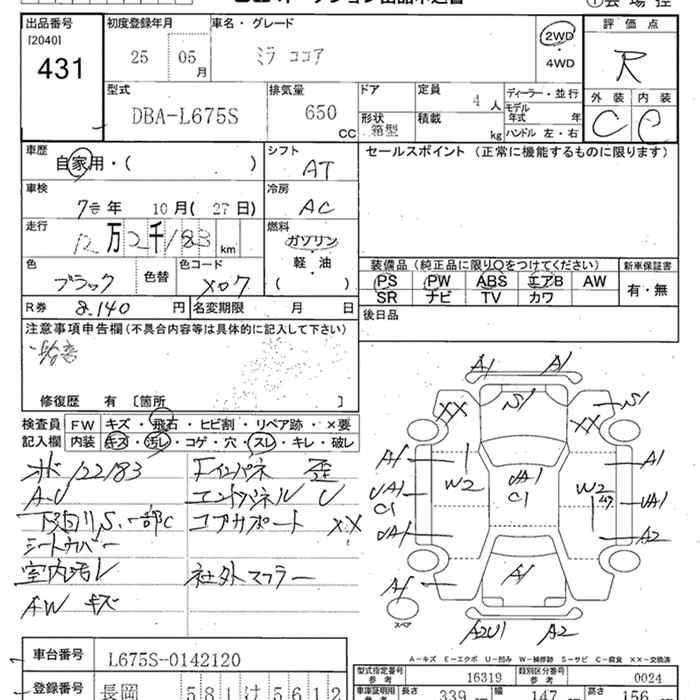 出品番号 初度登録年月 車名・グレード 2WD 評価点
[2040] 431 25 05月 ミラ ココア ・ 4WD R
型式 排気量 ドア 定員 ディーラー・並行 外装 内装
DBA-L675S 650 CC 4人 モデル年式 年 C C
形状 箱型 積載 kg ハンドル 左・右
車歴 シフト セールスポイント (正常に機能するものに限ります)
自家用・( ) AT
車検 冷房
年 10月(27日) AC
走行 燃料
12万2千183 km ガソリン・軽油
( )
色 色替 色コード 装備品 (純正品に限り○をつけてください) 新車保証書
ブラック X07 PS PW ABS エアB AW 有・無
SR ナビ TV カワ
R券 8,140 円 名変期限 月 日 後日品
注意事項申告欄 (不具合内容等は具体的に記入して下さい)
修復歴 有 〔箇所 〕
検査員記入欄 FW キズ・飛石・ヒビ割・リペア跡・×要
内装 キズ・汚レ・コゲ・穴・スレ・キレ・破レ
122183
A・U
シートカバー
室内汚レ 社外マフラー
AW キズ
A1 A1
XX S1 XX S1
A1 A1
W2 W2
UA1 C1 UA1 C1 UA1
UA1 A2
A1 A1
スペア
A2U1 A2
A-キズ E-エクボ U-凹み W-補修跡 S-サビ C-腐食 XX-交換済
車台番号 L675S-0142120
型式指定番号 参考 16319 類別区分番号 参考 0024
登録番号 長岡 581 け 5612
長さ 339 幅 147 高さ 156